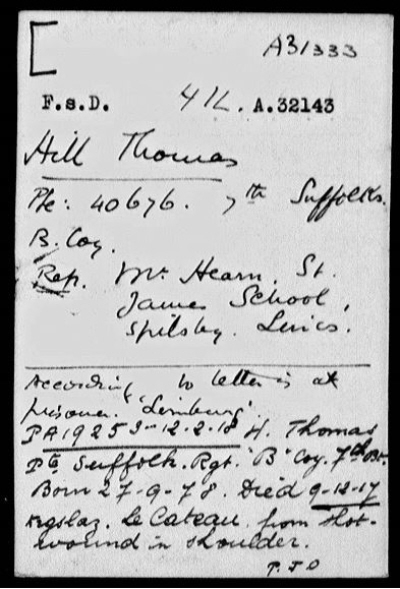 A31333
F.S.D. 4 IL. A.32143
Hill Thomas
Pte: 40676. 7th Suffolks.
B. Coy.
Rep. Mr. Hearn, St.
James School,
Spilsby. Lincs.
According to letter is at
prisoner. 'Limburg'.
PA 19253 12-2-18 H. Thomas
Pte Suffolk. Rgt. 'B' Coy. 7th Bt.
Born 27-9-78. Died 9-12-17
Kgslaz. Le Cateau from shot-
wound in shoulder.